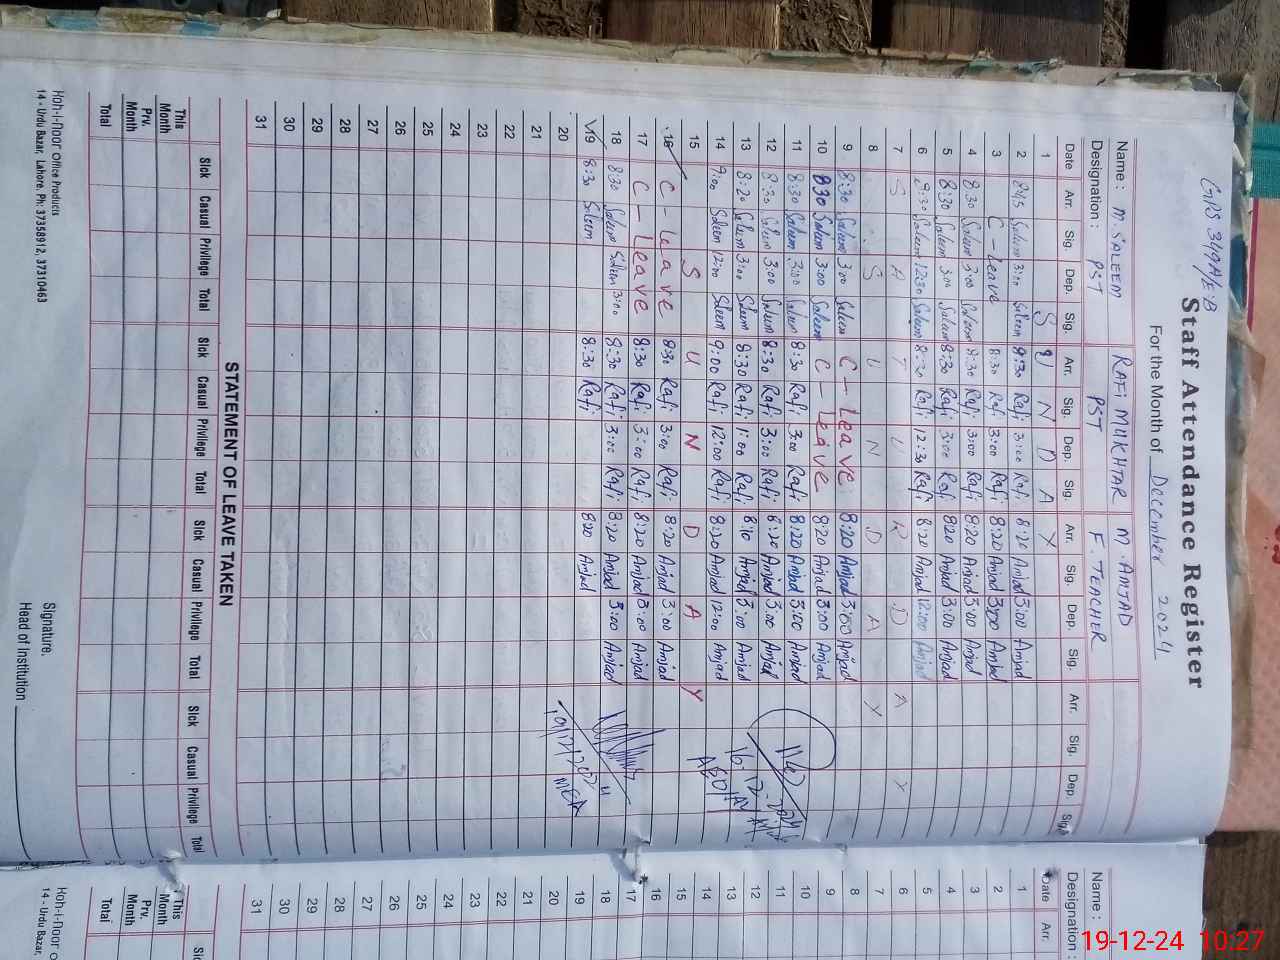 GPS 349A/EB
Staff Attendance Register
For the Month of December 2024
Name : M. SALEEM RAFI MUKHTAR M. AMJAD
Designation : PST PST F. TEACHER
Date Arr. Sig. Dep. Sig. Arr. Sig. Dep. Sig. Arr. Sig. Dep. Sig. Arr. Sig. Dep. Sig.
1 S U N D A Y
2 8:15 Saleem 3:00 Saleem 8:30 Rafi 3:00 Rafi 8:20 Amjad 3:00 Amjad
3 C - Leave 8:30 Rafi 3:00 Rafi 8:20 Amjad 3:00 Amjad
4 8:30 Saleem 3:00 Saleem 8:30 Rafi 3:00 Rafi 8:20 Amjad 3:00 Amjad
5 8:30 Saleem 3:00 Saleem 8:30 Rafi 3:00 Rafi 8:20 Amjad 3:00 Amjad
6 8:30 Saleem 12:30 Saleem 8:30 Rafi 12:30 Rafi 8:20 Amjad 12:00 Amjad
7 S A T U R D A Y
8 S U N D A Y
9 8:30 Saleem 3:00 Saleem C - Leave 8:20 Amjad 3:00 Amjad
10 8:30 Saleem 3:00 Saleem C - Leave 8:20 Amjad 3:00 Amjad
11 8:30 Saleem 3:00 Saleem 8:30 Rafi 3:00 Rafi 8:20 Amjad 3:00 Amjad
12 8:30 Saleem 3:00 Saleem 8:30 Rafi 3:00 Rafi 8:20 Amjad 3:00 Amjad
13 8:20 Saleem 3:00 Saleem 8:30 Rafi 1:00 Rafi 8:10 Amjad 3:00 Amjad
14 9:00 Saleem 12:00 Saleem 9:00 Rafi 12:00 Rafi 8:20 Amjad 12:00 Amjad
15 S U N D A Y
16 C - Leave 8:30 Rafi 3:00 Rafi 8:20 Amjad 3:00 Amjad
17 C - Leave 8:30 Rafi 3:00 Rafi 8:20 Amjad 3:00 Amjad
18 8:30 Saleem Saleem 3:00 8:30 Rafi 3:00 Rafi 8:20 Amjad 3:00 Amjad
19 8:30 Saleem 8:30 Rafi 8:20 Amjad
20
21
22
23
24
25
26
27
28
29
30
31
MEA
STATEMENT OF LEAVE TAKEN
Sick Casual Privilege Total Sick Casual Privilege Total Sick Casual Privilege Total Sick Casual Privilege Total
This Month
Prv. Month
Total
Signature.
Head of Institution
Koh-i-Noor Office Products
14 - Urdu Bazar, Lahore. Ph: 37358912, 37310463
Name :
Designation :
Date Arr.
1
2
3
4
5
6
7
8
9
10
11
12
13
14
15
16
17
18
19
20
21
22
23
24
25
26
27
28
29
30
31
Sick
This Month
Prv. Month
Total
Koh-i-Noor O
14 - Urdu Bazar,
19-12-24 10:27